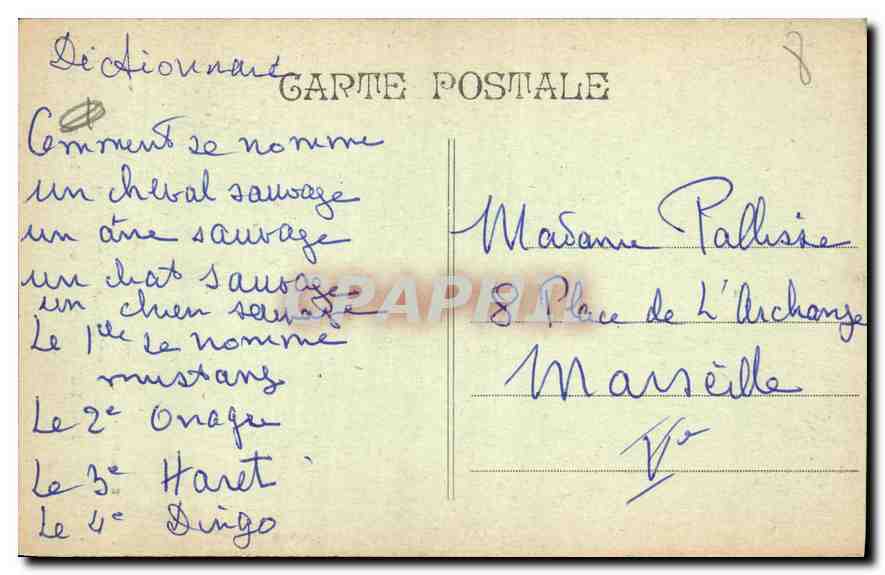 Dictionnaire
CARTE POSTALE
8
Comment se nomme
un cheval sauvage
un âne sauvage
un chat sauvage
un chien sauvage
Le 1er se nomme
mustang
Le 2e Onagre
Le 3e Haret
Le 4e Dingo
Madame Pallisse
8 Place de L'Archange
Marseille
Ve
CPAPHIL